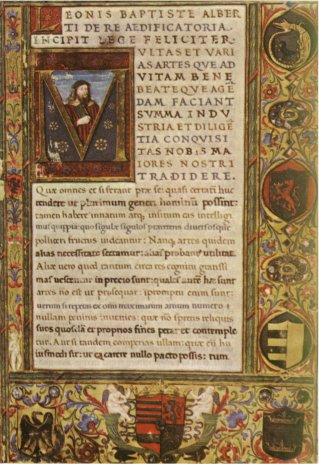 LEONIS BAPTISTE ALBER
TI DE RE AEDIFICATORIA.
INCIPIT LEGE FELICITER
VLTAS ET VARI
AS ARTES QVE AD
VITAM BENE
BEATEQVE AGĒ
DAM FACIANT
SVMMA INDV
STRIA ET DILIGĒ
TIA CONQVISI
TAS NOBIS MA
IORES NOSTRI
TRADIDERE.
Quæ omnes et si ferant præ se: quasi certatī huc
tendere ut plurimum generi hominū possint:
tamen habere innatum atq insitum eis intelligi
mus quippiā: quo singule singulos præ ceteris diuersosque
polliceri fructus uideantur: Nanq artes quidem
alias necessitate sectamur: alias probant utilitat.
Aliæ uero quod tantum circa res cognitu gratissi
mas uersentur in precio sunt: quales autē hæ sint
artes nō est ut prosequar: ī promptu enim sunt:
uerum si repetas ex omni maximarum artium numero
nullam penitus inuenies: que nō spretis reliquis
suos quosdā et proprios fines petat et contemple
tur. Aut si tandem comperias ullam: que cū
huiusmodi sit: ut ea carere nullo pacto possis: tum